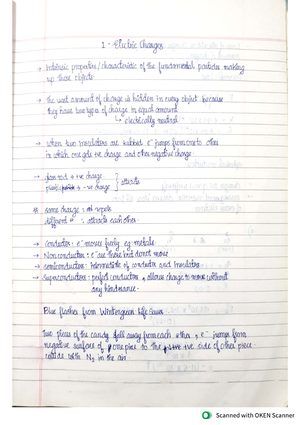 1. Electric Charges
→ Intrinsic properties/characteristic of the fundamental particles making
up those objects
→ The vast amount of charge is hidden in every object because
they have two types of charge in equal amount
↳ electrically neutral
→ when two insulators are rubbed e⁻ jumps from one to other
in which one gets +ve charge and other negative charge
→ glass rod → +ve charge
→ plastic → -ve charge } attracts
* Same charge : repels
different " : attracts each other
→ Conductor : e⁻ moves freely eg metals
→ Non conductors : e⁻ are there but do not move
→ semiconductor : Intermediate of conductor and Insulator
→ Superconductors : perfect conductors, allows charge to move without
any hindrance
Blue flashes from Wintergreen Life Saver
two pieces of the candy fall away from each other, e⁻ jumps from
negative surface of one piece to the +ve side of other piece
collide with N₂ in the air
Scanned with OKEN Scanner